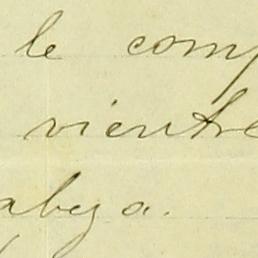 le comp
vientre
abeza.